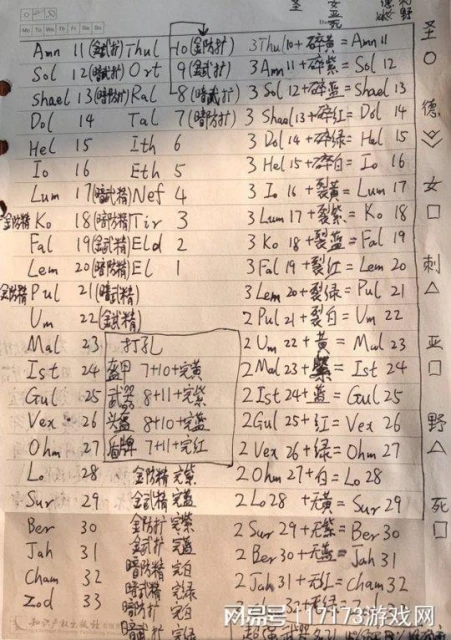 圣
Mo Tu We Th Fr Sa Su
Amn 11(金武扩) Thul 10(金防扩) 3Thul10+碎黄=Amn 11
Sol 12(暗武扩) Ort 9(金武扩) 3 Amn 11+碎紫=Sol 12
Shael 13(暗防扩) Ral 8(暗武扩) 3 Sol 12+碎蓝=Shael 13
Dol 14 Tal 7(暗防扩) 3 Shael 13+碎红=Dol 14
Hel 15 Ith 6 3 Dol 14+碎绿=Hel 15
Io 16 Eth 5 3 Hel 15+碎白=Io 16
Lum 17(暗武精) Nef 4 3 Io 16+裂黄=Lum 17
金防精 Ko 18(暗防精) Tir 3 3 Lum 17+裂紫=Ko 18
Fal 19(金武精) Eld 2 3 Ko 18+裂蓝=Fal 19
Lem 20(暗防精) El 1 3 Fal 19+裂红=Lem 20
金防精 Pul 21(暗武精) 3 Lem 20+裂绿=Pul 21
Um 22(金武精) 2 Pul 21+裂白=Um 22
Mal 23 打孔 2 Um 22+黄=Mal 23
Ist 24 盔甲 7+10+完黄 2 Mal 23+紫=Ist 24
Gul 25 武器 8+11+完紫 2 Ist 24+蓝=Gul 25
Vex 26 头盔 8+10+完蓝 2 Gul 25+红=Vex 26
Ohm 27 盾牌 7+11+完红 2 Vex 26+绿=Ohm 27
Lo 28 金防精 完紫 2 Ohm 27+白=Lo 28
Sur 29 金武精 完蓝 2 Lo 28+无黄=Sur 29
Ber 30 金防扩 完紫 2 Sur 29+无紫=Ber 30
Jah 31 金武扩 完蓝 2 Ber 30+无蓝=Jah 31
Cham 32 暗防精 完白 2 Jah 31+无红=Cham 32
Zod 33 暗武精 完绿
暗防扩 完白
暗武扩 完绿
圣 ○
德
女 □
刺 △
亚 □
野 △
死 □
知识产权出版社
网易号 | 17173游戏网